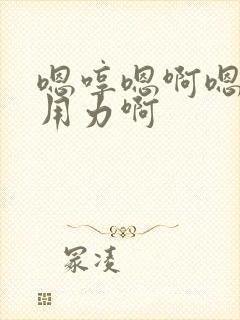 嗯哼嗯啊嗯
用力啊
冢凌